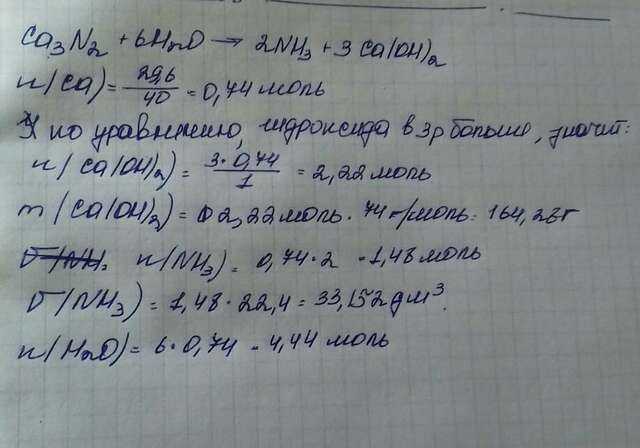 Ca₃N₂ + 6H₂O → 2NH₃ + 3Ca(OH)₂
n(Ca) = 29,6/40 = 0,74 моль
по уравнению, гидроксида в 3р больше, значит:
n(Ca(OH)₂) = 3·0,74/1 = 2,22 моль
m(Ca(OH)₂) = 2,22 моль · 74 г/моль = 164,28г
n(NH₃) = 0,74·2 = 1,48 моль
V(NH₃) = 1,48·22,4 = 33,152 дм³.
n(H₂O) = 6·0,74 = 4,44 моль